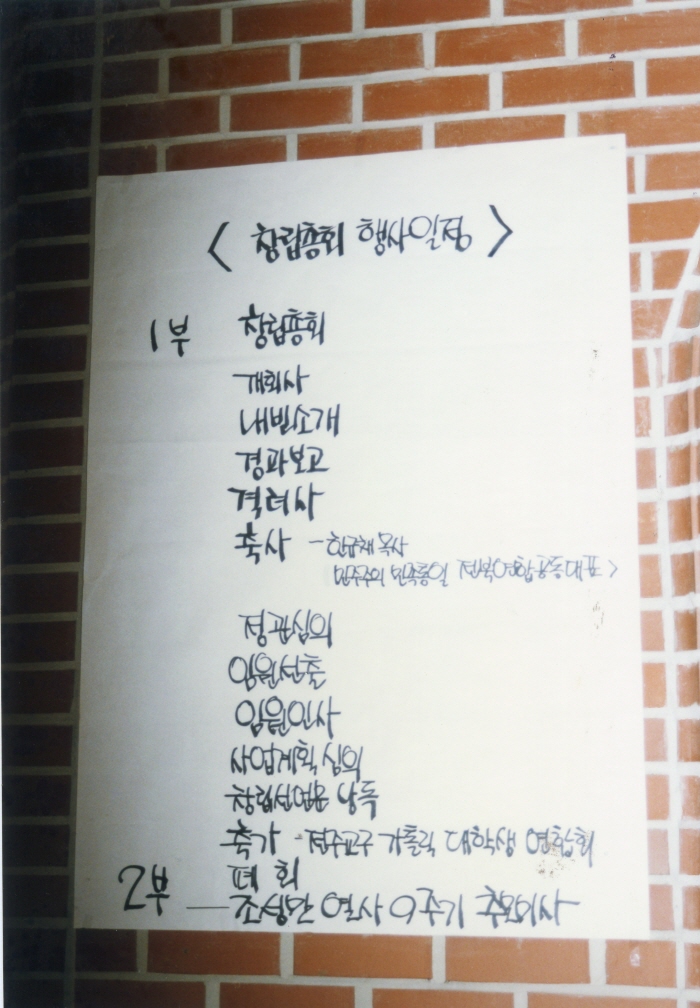 < 창립총회 행사일정 >
1부 창립총회
개회사
내빈소개
경과보고
격려사
축사 - 한규채 목사
민주주의 민족통일 전북연합공동대표>
정관심의
임원선출
임원인사
사업계획 심의
창립선언문 낭독
축가 - 전주교구 가톨릭 대학생 연합회
폐회
2부 — 조성만 열사 9주기 추모미사